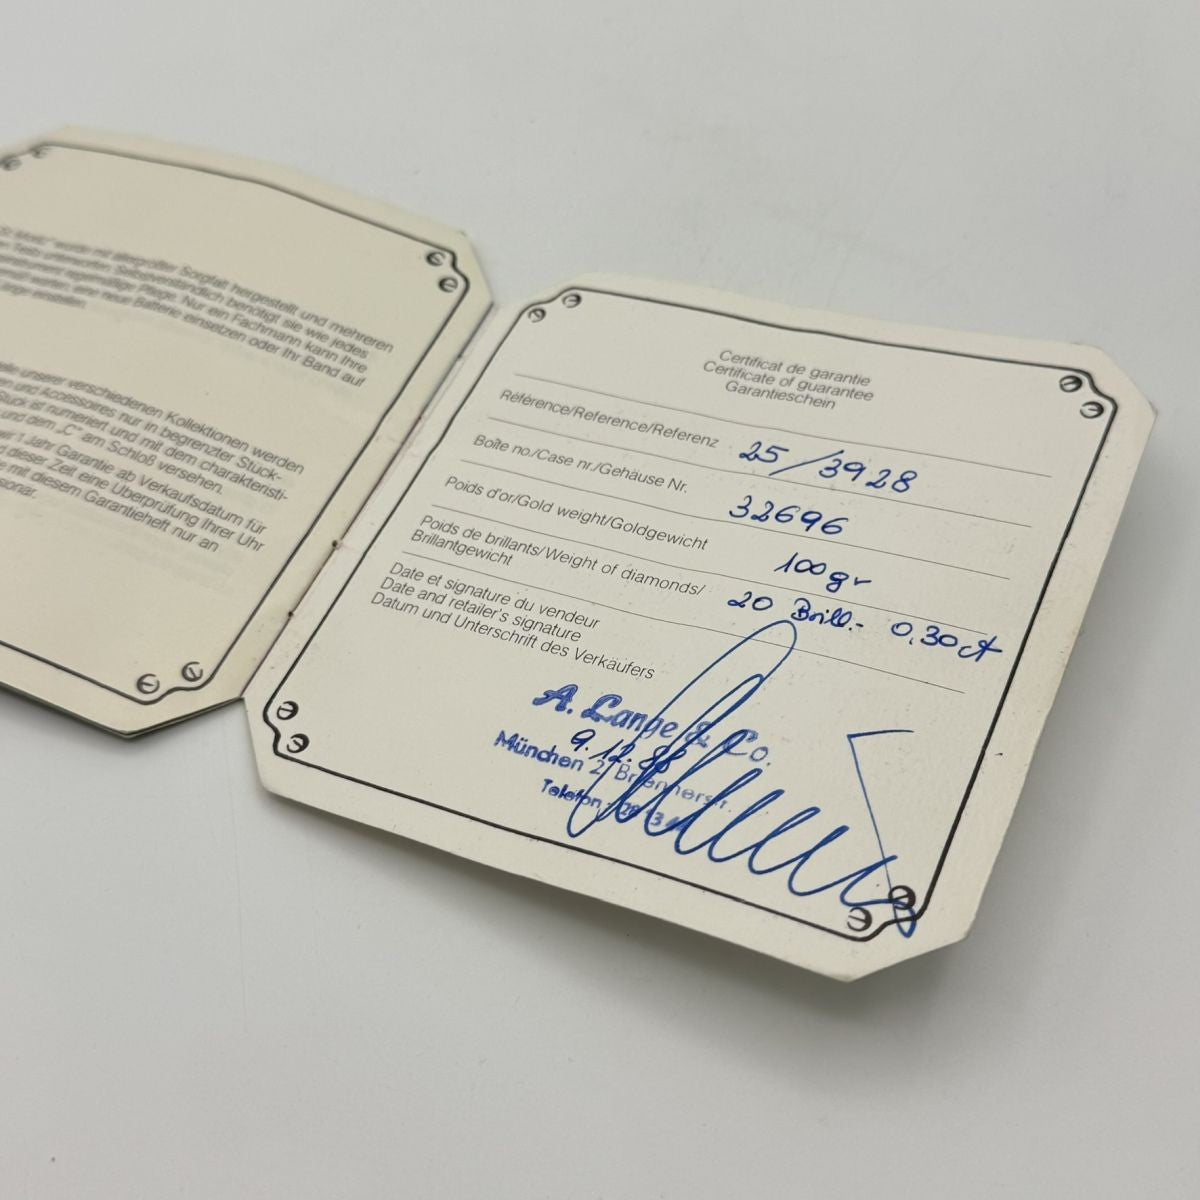 St. Moritz" wurde mit allergrößter Sorgfalt hergestellt und mehreren
Tests unterworfen. Selbstverständlich benötigt sie wie jedes
regelmäßige Pflege. Nur ein Fachmann kann Ihre
eine neue Batterie einsetzen oder Ihr Band auf
Länge einstellen.
unserer verschiedenen Kollektionen werden
und Accessoires nur in begrenzter Stück-
Stück ist numeriert und mit dem charakteristi-
und dem „C" am Schloß versehen.
wir 1 Jahr Garantie ab Verkaufsdatum für
dieser Zeit eine Überprüfung Ihrer Uhr
mit diesem Garantieheft nur an
Certificat de garantie
Certificate of guarantee
Garantieschein
Référence/Reference/Referenz 25/3928
Boîte no./Case nr./Gehäuse Nr. 32696
Poids d'or/Gold weight/Goldgewicht 100gr
Poids de brillants/Weight of diamonds/
Brillantgewicht 20 Brill.- 0,30 ct
Date et signature du vendeur
Date and retailer's signature
Datum und Unterschrift des Verkäufers
A. Lange & Co.
9.12.88
München 2, Briennerstr.
Telefon